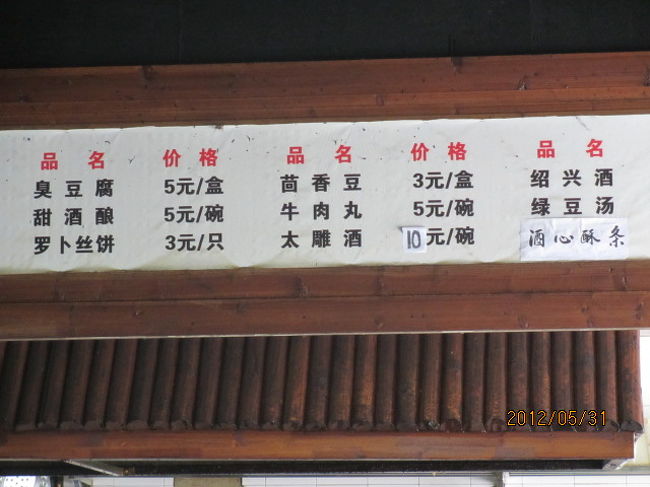 品名 价格 品名 价格 品名
臭豆腐 5元/盒 茴香豆 3元/盒 绍兴酒
甜酒酿 5元/碗 牛肉丸 5元/碗 绿豆汤
罗卜丝饼 3元/只 太雕酒 10元/碗 酒心酥条
2012/05/31